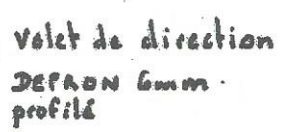 Volet de direction
DEPRON 6mm.
profilé